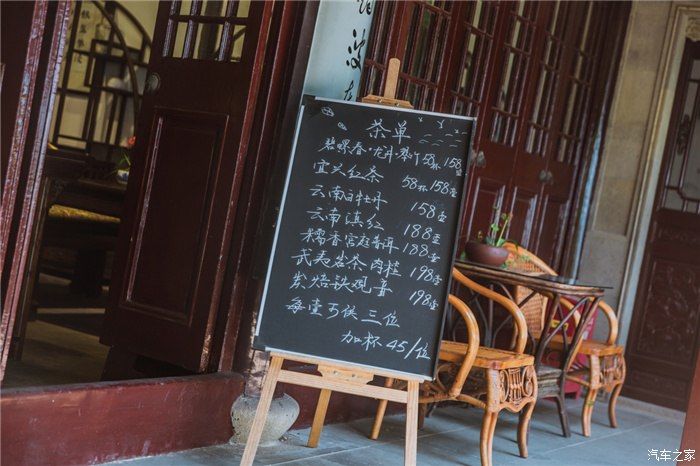 茶单
碧螺春·龙井·翠竹 58杯 158壶
宜兴红茶 58杯 158壶
云南白牡丹 158壶
云南滇红 188壶
糯香宫廷普洱 188壶
武夷岩茶肉桂 198壶
炭焙铁观音 198壶
每壶可供三位
加杯 45/位
汽车之家